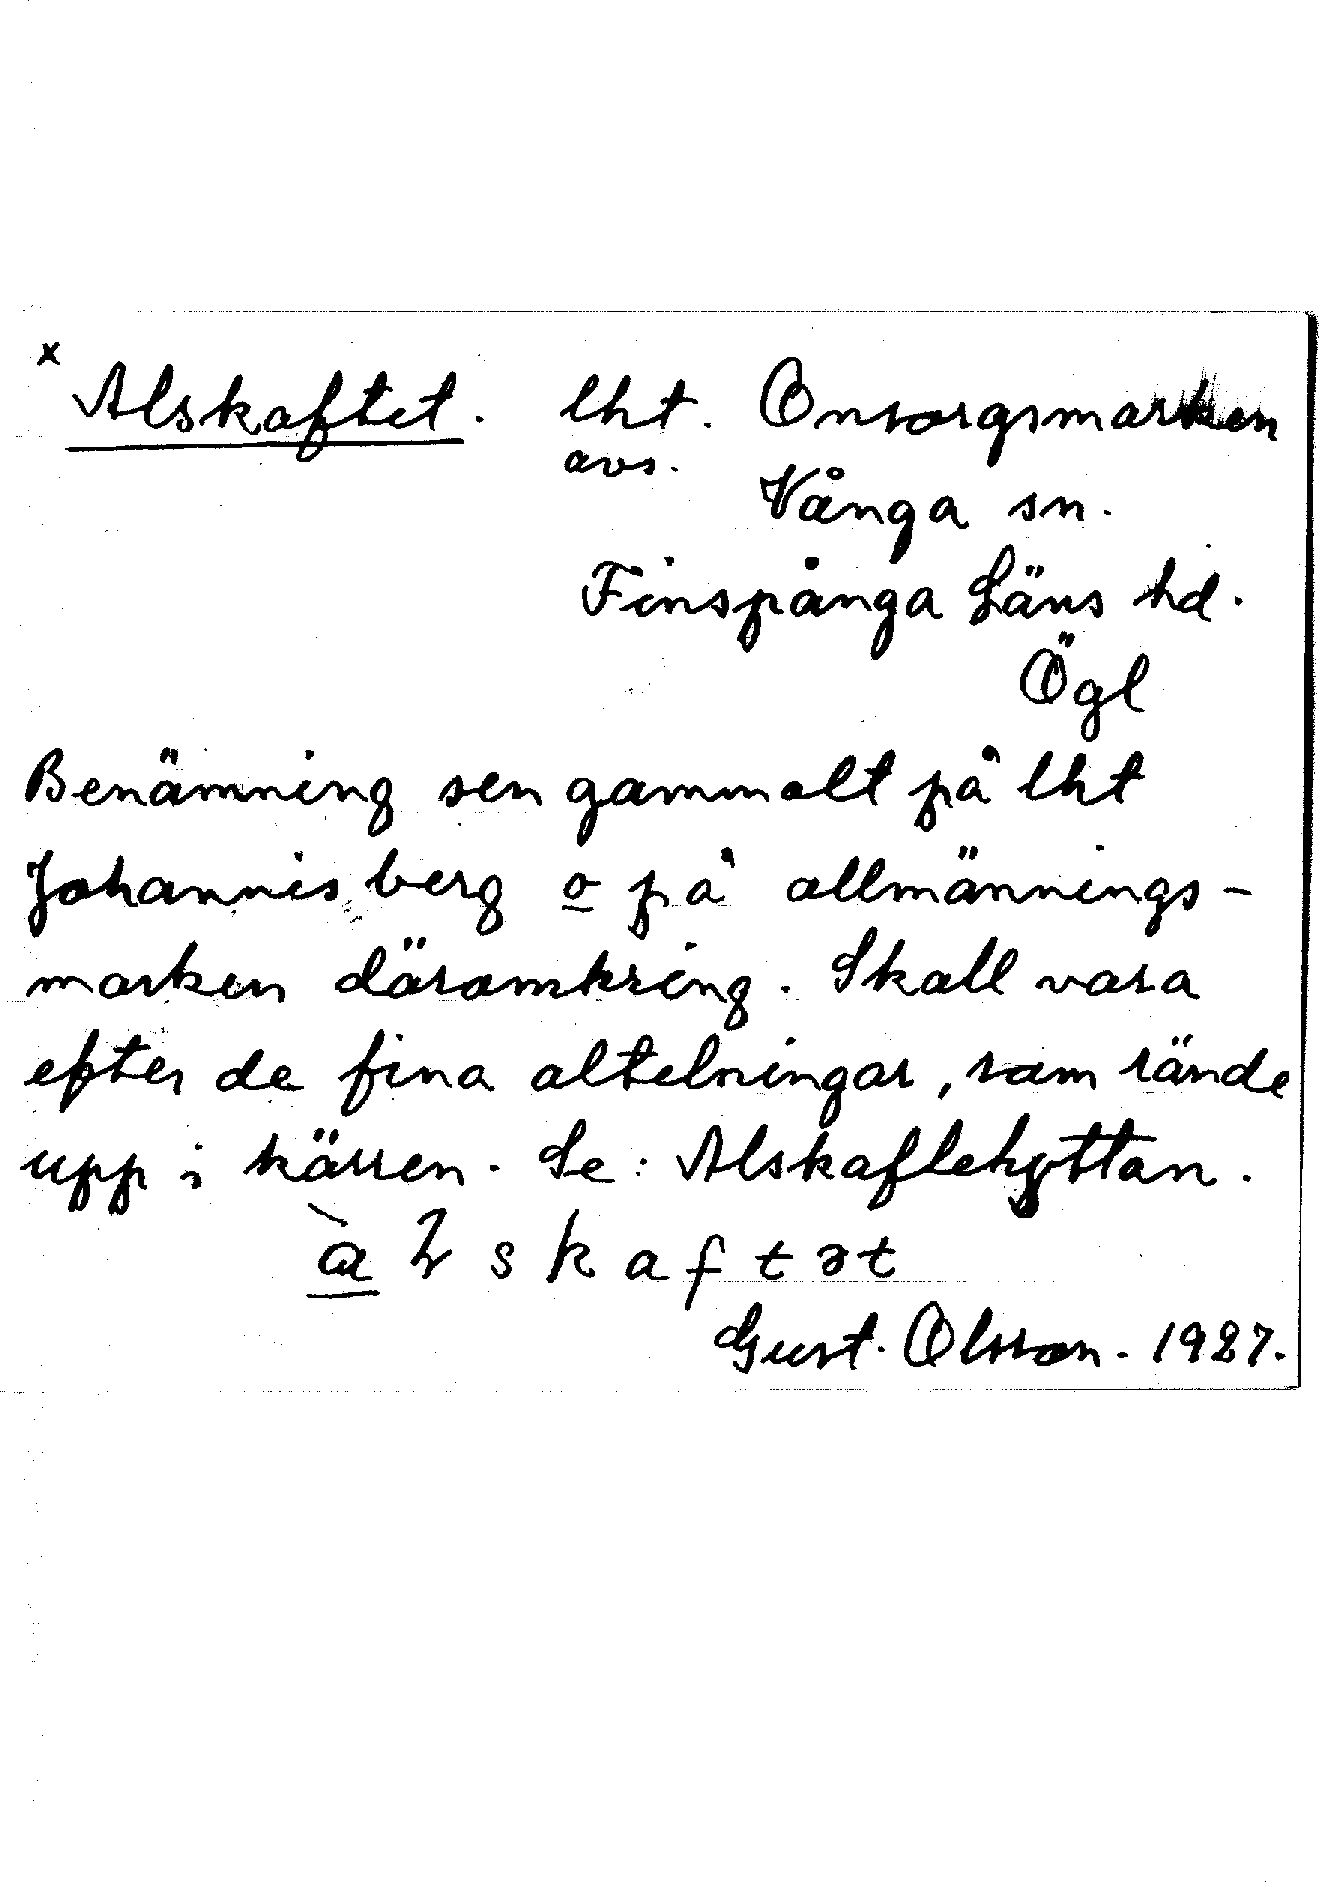 x
Alskaftet. lht. Onsorgsmarken
avs. Vånga sn.
Finspånga Läns hd.
Ögl
Benämning sen gammalt på lht
Johannisberg o på allmännings-
marken däromkring. Skall vara
efter de fina altelningar, som rände
upp i kärren. Se: Alskaflehyttan.
Gust. Olsson. 1927.